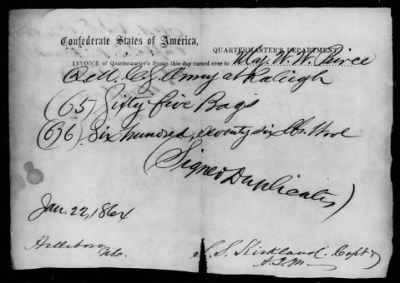 Confederate States of America,
QUARTERMASTER'S DEPARTMENT
INVOICE of Quartermaster's Stores this day turned over to Maj. W. W. Peirce
Q.M. C.S. Army at Raleigh
(65) Sixty-five Bags
(676) Six hundred, seventy six lbs. Wool
(Signed Duplicates)
Jan. 22, 1864
Hillsboro,
N.C.
S. S. Kirkland, Capt &
A.Q.M.